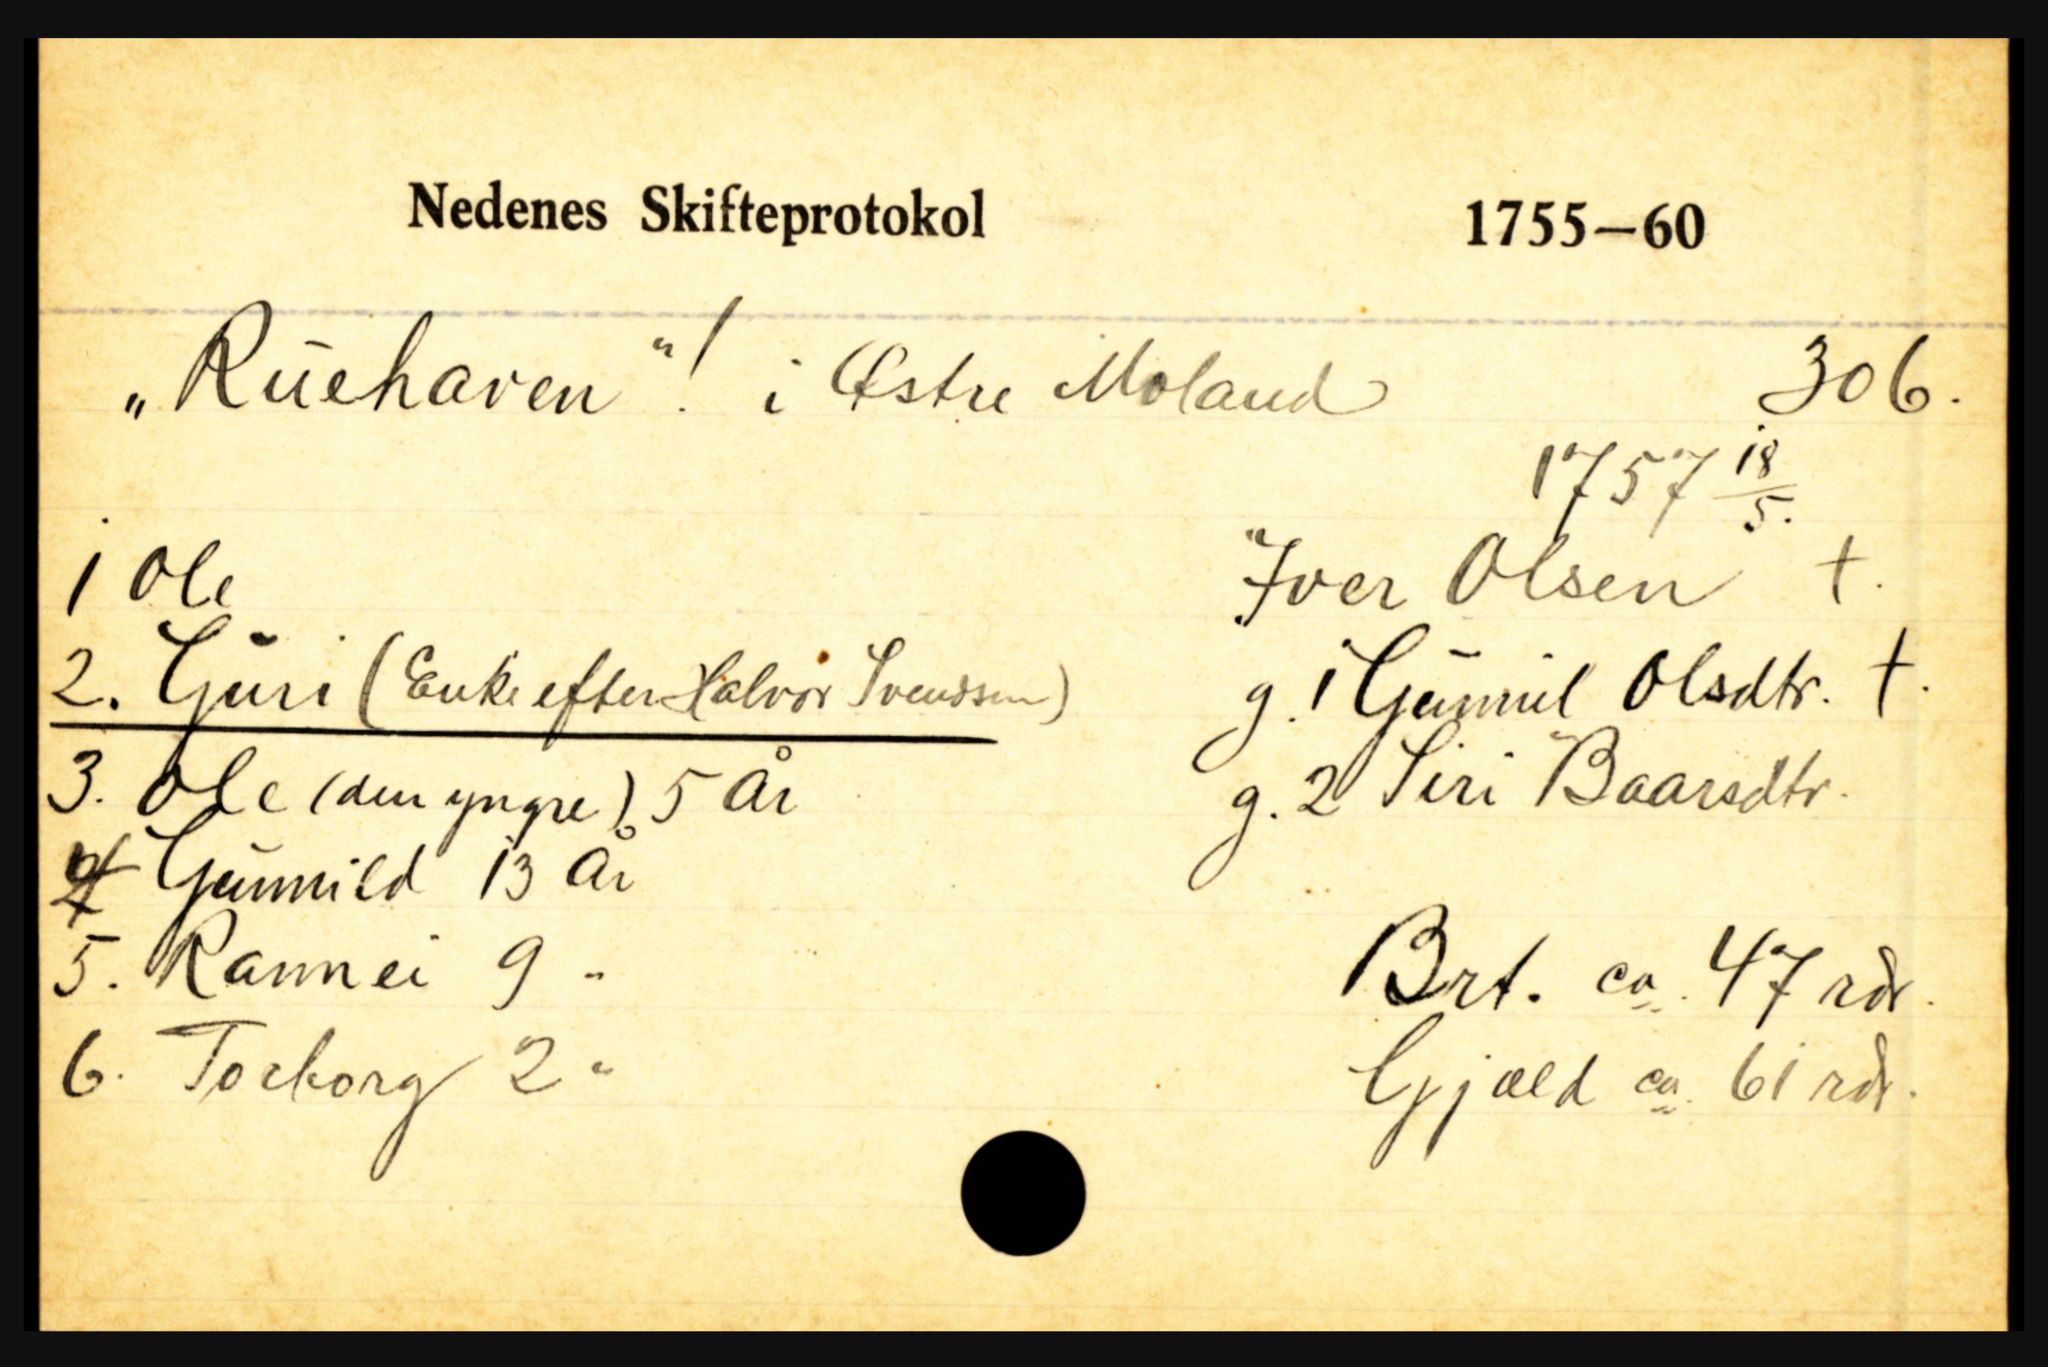 Nedenes Skifteprotokol 1755—60
„Ruehaven“! i Østre Moland 306.
1757 18/5.
Iver Olsen †.
g. 1 Gunnil Olsdtr. †.
g. 2 Siri Baarsdtr.
Brt. ca. 47 rdr.
Gjæld ca. 61 rdr.
1 Ole
2. Guri (Enke efter Halvor Svendsen)
3. Ole (den yngre) 5 År
4 Gunnild 13 År
5. Rannei 9 "
6. Torborg 2 "